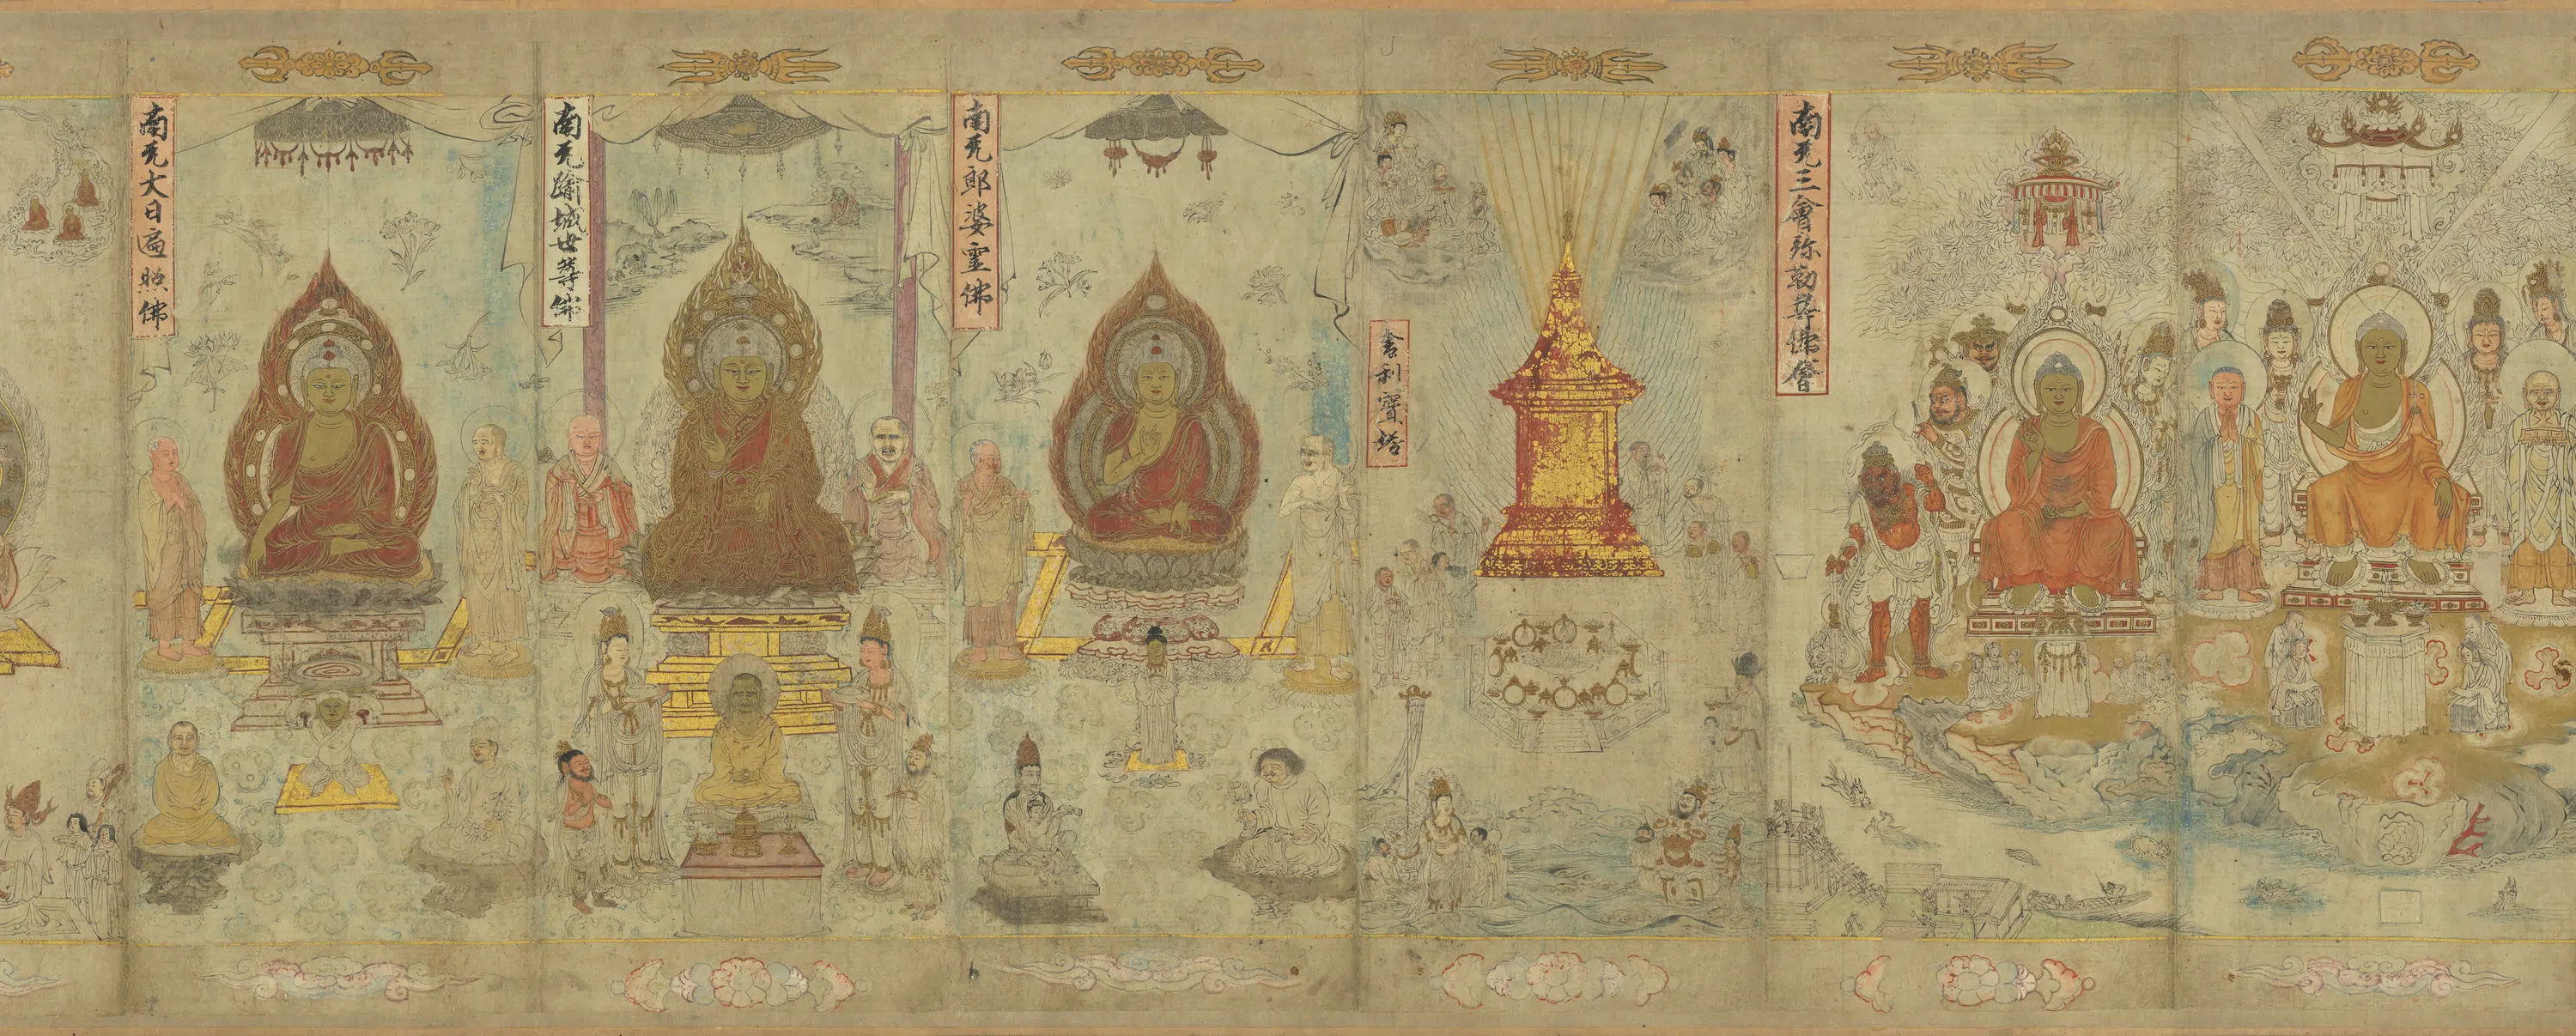 南无三會弥勒尊佛會
舍利寶塔
南无郎婆霊佛
南无踰城世尊佛
南无大日遍照佛